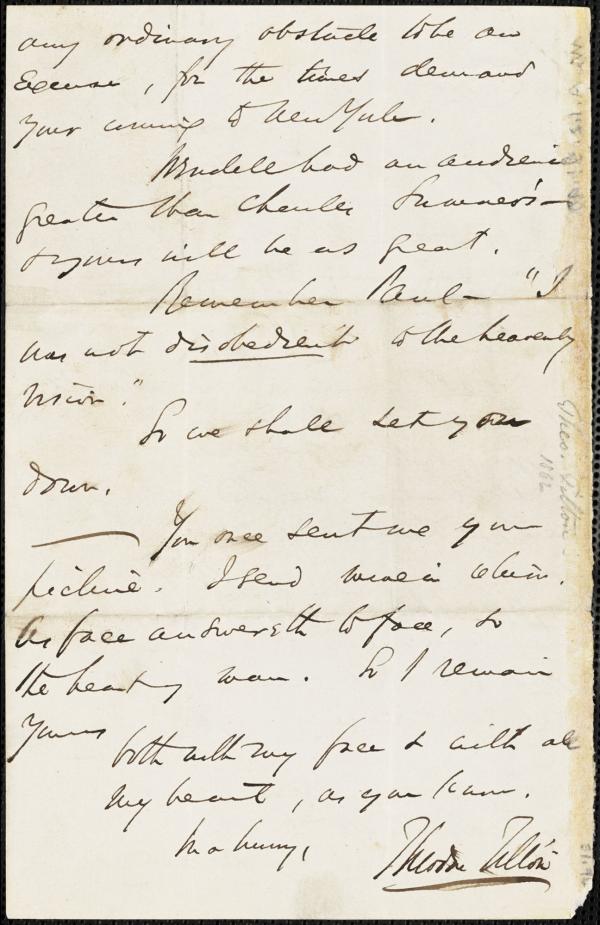 any ordinary obstacle to be an
excuse, for the times demand
your coming to New York.
Wendell had an audience
greater than Charles Sumner's —
& yours will be as great.
Remember Paul — "I
was not disobedient to the heavenly
vision."
So we shall set you
down.
You once sent me your
picture. I send mine in return.
As face answereth to face, so
the heart of man. So I remain
Yours
both with my face & with all
my heart, as you know.
In a hurry,
Theodore Tilton
Theo. Tilton.
1862